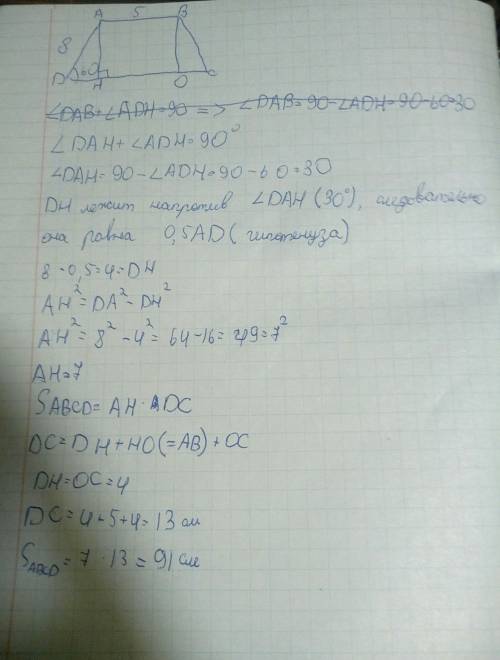 A 5 B
8
D 60 H O C
∠DAB+∠ADH=90 => ∠DAB=90-∠ADH=90-60=30
∠DAH+∠ADH=90°
∠DAH=90-∠ADH=90-60=30
DH лежит напротив ∠DAH (30°), следовательно
она равна 0,5AD (гипотенуза)
8·0,5=4=DH
AH²=DA²-DH²
AH²=8²-4²=64-16=49=7²
AH=7
SABCD=AH·DC
DC=DH+HO(=AB)+OC
DH=OC=4
DC=4+5+4=13 см
SABCD=7·13=91 см